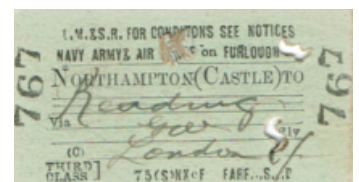 L.M.&S.R. FOR CONDITONS SEE NOTICES
NAVY ARMY& AIR on FURLOUGH
NORTHAMPTON(CASTLE)TO
Reading
Via GW
London
(C)
THIRD]
CLASS 75(S)NXCF FARE..S..D
767
767